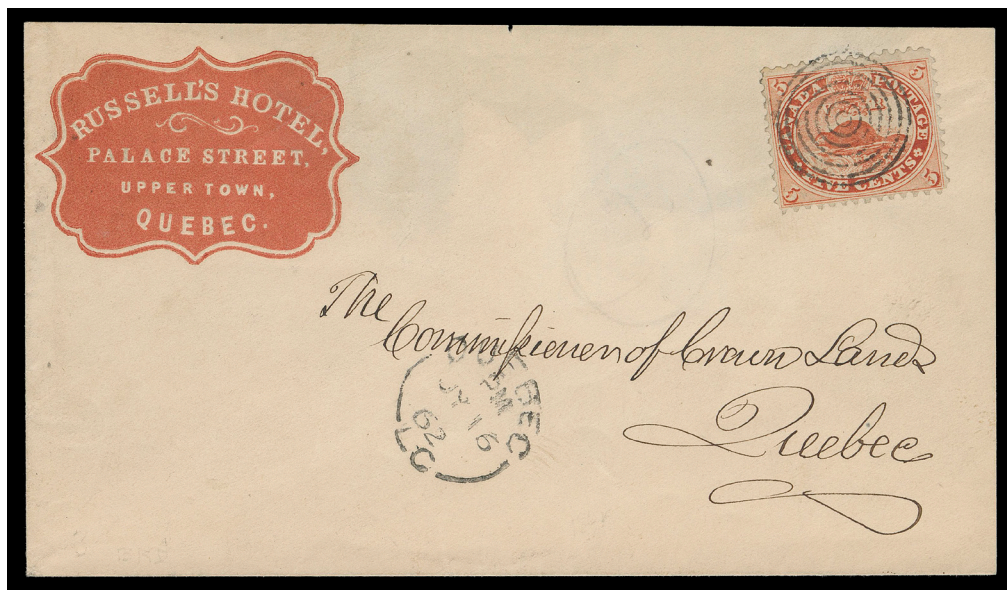 RUSSELL'S HOTEL,
PALACE STREET,
UPPER TOWN,
QUEBEC.
5 5
CANADA POSTAGE
FIVE CENTS
5 5
The
Commissioner of Crown Lands
Quebec
QUEBEC
PM
16
62
L.C